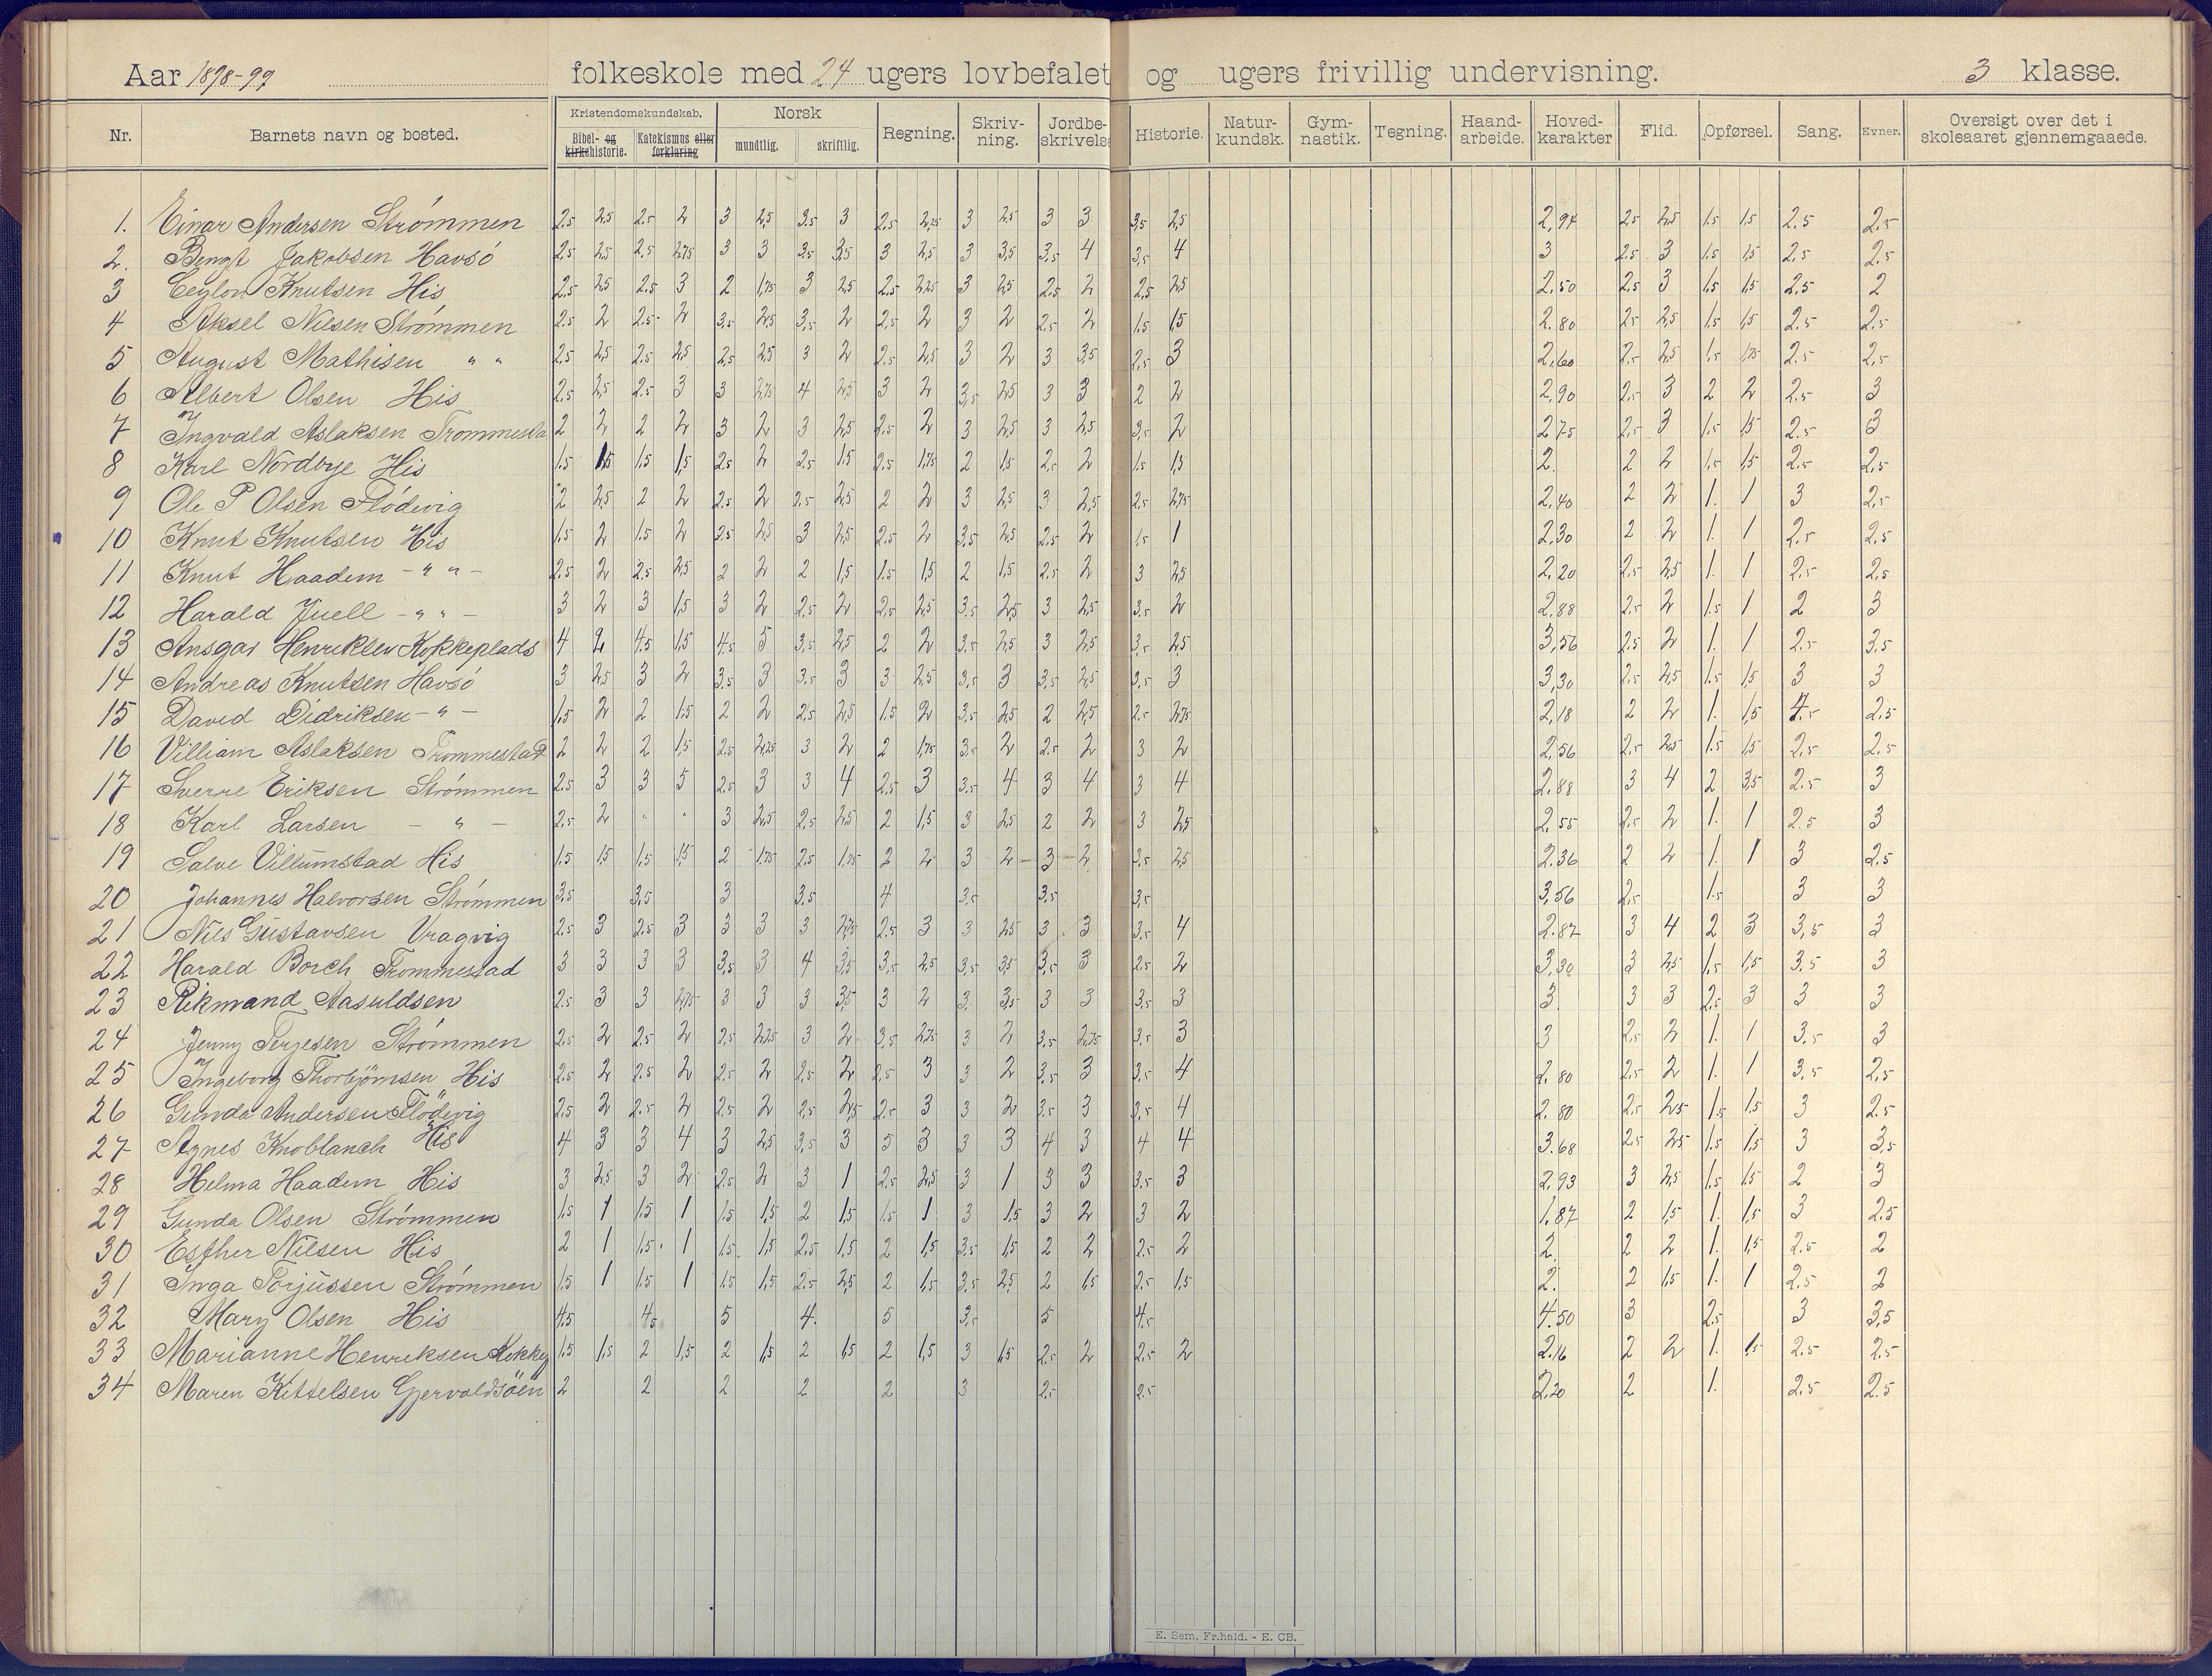 Aar 1898-99 folkeskole med 24 ugers lovbefalet og ugers frivillig undervisning. 3 klasse.
Nr. Barnets navn og bosted. Kristendomskundskab. Bibel- og kirkehistorie. Katekismus eller forklaring Norsk mundtlig. skriftlig. Regning. Skriv-ning. Jordbe-skrivelse Historie. Natur-kundsk. Gym-nastik. Tegning. Haand-arbeide. Hoved-karakter Flid. Opførsel. Sang. Evner. Oversigt over det i skoleaaret gjennemgaaede.
1. Einar Andersen Strömmen 2.5 2,5 2.5 2 3 2,5 3.5 3 2.5 2,25 3 2,5 3 3 3,5 2,5 2,94 2.5 2,5 1.5 1,5 2.5 2.5
2. Bengt Jakobsen Havsö 2.5 2,5 2.5 2,75 3 3 3.5 3,5 3 2,5 3 3,5 3.5 4 3.5 4 3 2.5 3 1.5 1,5 2.5 2.5
3 Ceylon Knutsen His 2.5 2,5 2.5 3 2 1,75 3 2,5 2.5 2,25 3 2,5 2.5 2 2.5 2,5 2.50 2.5 3 1.5 1,5 2.5 2
4 Aksel Nilsen Strömmen 2.5 2 2.5 2 3.5 2,5 3.5 2 2.5 2 3 2 2.5 2 1.5 1,5 2.80 2.5 2,5 1.5 1,5 2.5 2.5
5 August Mathisen " " 2.5 2,5 2.5 2,5 2.5 2,5 3 2 2.5 2,5 3 2 3 3,5 2.5 3 2,60 2.5 2,5 1.5 1,75 2.5 2,5
6 Albert Olsen His 2.5 2,5 2.5 3 3 2,75 4 2,5 3 2 3.5 2,5 3 3 2 2 2,90 2.5 3 2 2 2.5 3
7 Ingvald Aslaksen Trommesta 2 2 2 2 3 2 3 2,5 2.5 2 3 2,5 3 2,5 3.5 2 2,75 2.5 3 1.5 1,5 2.5 3
8 Karl Nordbye His 1.5 1,5 1.5 1,5 2.5 2 2.5 1,5 2.5 1,75 2 1,5 2.5 2 1.5 1,5 2. 2 2 1.5 1,5 2.5 2,5
9 Ole P Olsen Flödevig 2 2,5 2 2 2.5 2 2.5 2,5 2 2 3 2,5 3 2,5 2.5 2,75 2,40 2 2 1. 1 3 2.5
10 Knut Knutsen His 1.5 2 1.5 2 2.5 2,5 3 2,5 2.5 2 3.5 2,5 2.5 2 1.5 1 2,30 2 2 1. 1 2.5 2,5
11 Knut Haadem - " " - 2.5 2 2.5 2,5 2 2 2 1,5 1.5 1,5 2 1,5 2.5 2 3 2,5 2,20 2.5 2,5 1. 1 2.5 2,5
12 Harald Juell - " " - 3 2 3 1,5 3 2 2.5 2 2.5 2,5 3.5 2,5 3 2,5 3.5 2 2,88 2.5 2 1.5 1 2 3
13 Ansgar Henriksen Kokkeplads 4 2 4.5 1,5 4.5 5 3.5 2,5 2 2 3.5 2,5 3 2,5 3.5 2,5 3,56 2.5 2 1. 1 2.5 3.5
14 Andreas Knutsen Havsö 3 2,5 3 2 3.5 3 3.5 3 3 2,5 3.5 3 3.5 2,5 3.5 3 3,30 2.5 2,5 1.5 1,5 3 3
15 David Didriksen - " - 1.5 2 2 1,5 2 2 2.5 2,5 1.5 2 3.5 2,5 2 2,5 2.5 2,75 2,18 2 2 1. 1,5 2.5
16 Villiam Aslaksen Trommestad 2 2 2 1,5 2.5 2,25 3 2 2 1,75 3.5 2 2.5 2 3 2 2,56 2.5 2,5 1.5 1,5 2.5 2.5
17 Sverre Eriksen Strömmen 2.5 3 3 5 2.5 3 3 4 2.5 3 3.5 4 3 4 3 4 2.88 3 4 2 3,5 2.5 3
18 Karl Larsen - " - 2.5 2 " " 3 2,5 2.5 2,5 2 1,5 3 2,5 2 2 3 2,5 2,55 2.5 2 1. 1 2.5 3
19 Salve Villumstad His 1.5 1,5 1.5 1,5 2 1,75 2.5 1,75 2 2 3 2 3 2 3.5 2,5 2.36 2 2 1. 1 3 2.5
20 Johannes Halvorsen Strömmen 3.5 3.5 3 3.5 4 3.5 3.5 3.5 3,56 2.5 1.5 3 3
21 Nils Gustavsen Vragvig 2.5 3 2.5 3 3 3 3 2,75 2.5 3 3 2,5 3 3 3.5 4 2.87 3 4 2 3 3,5 3
22 Harald Borch Trommestad 3 3 3 3 3.5 3 4 3,5 3.5 2,5 3.5 3,5 3.5 3 2.5 2 3,30 3 2,5 1.5 1,5 3.5 3
23 Rikmand Aasuldsen 2.5 3 3 2,75 3 3 3 3,5 3 2 3. 3,5 3 3 3.5 3 3. 3 3 2.5 3 3 3
24 Jenny Terjesen Strömmen 2.5 2 2.5 2 2.5 2,25 3 2 3.5 2,75 3 2 3.5 2,75 3.5 3 3 2.5 2 1. 1 3.5 3
25 Ingeborg Thorbjörnsen His 2.5 2 2.5 2 2.5 2 2.5 2 2.5 3 3 2 3.5 3 3.5 4 2.80 2.5 2 1. 1 3.5 2,5
26 Gunda Andersen Flödevig 2.5 2 2.5 2 2.5 2 2.5 2,5 2.5 3 3 2 3.5 3 3.5 4 2.80 2.5 2,5 1.5 1,5 3 2.5
27 Agnes Knoblauch His 4 3 3 4 3 2,5 3.5 3 5 3 3 3 4 3 4 4 3.68 2.5 2,5 1.5 1,5 3 3,5
28 Helma Haadem His 3 2,5 3 2 2.5 2 3 1 2.5 2,5 3 1 3 3 3.5 3 2.93 3 2,5 1.5 1,5 2 3
29 Gunda Olsen Strömmen 1.5 1 1.5 1 1.5 1,5 2 1,5 1.5 1 3 1,5 3 2 3 2 1.87 2 1,5 1. 1,5 3 2.5
30 Esther Nilsen His 2 1 1.5 1 1.5 1,5 2.5 1,5 2 1,5 3.5 1,5 2 2 2.5 2 2. 2 2 1. 1,5 2.5 2
31 Inga Torjussen Strömmen 1.5 1 1.5 1 1.5 1,5 2.5 2,5 2 1,5 3.5 2,5 2 1,5 2.5 1,5 2. 2 1,5 1. 1 2.5 2
32 Mary Olsen His 4.5 4.5 5 4. 5 3.5 5 4.5 4.50 3 2.5 3 3,5
33 Marianne Henriksen Kokkep 1.5 1,5 2 1,5 2 1,5 2 1,5 2 1,5 3 1,5 2.5 2 2.5 2 2.16 2 2 1. 1,5 2.5 2.5
34 Maren Kittelsen Gjervoldsöen 2 2 2 2 2 3 2.5 2.5 2.20 2 1. 2.5 2.5
E. Sem, Fr.hald. - E. CB.